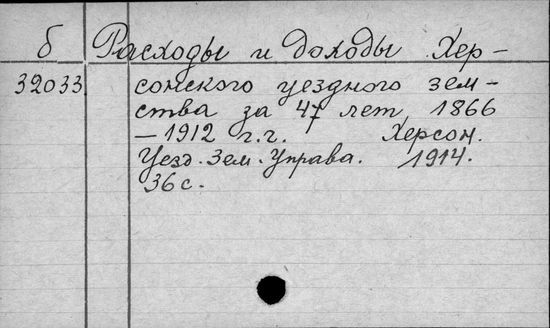 б Расходы и доходы Хер-
32033 сонского уездного зем-
ства за 47 лет 1866
- 1912 г.г. Херсон.
Уезд. Зем. Управа. 1914.
36 с.